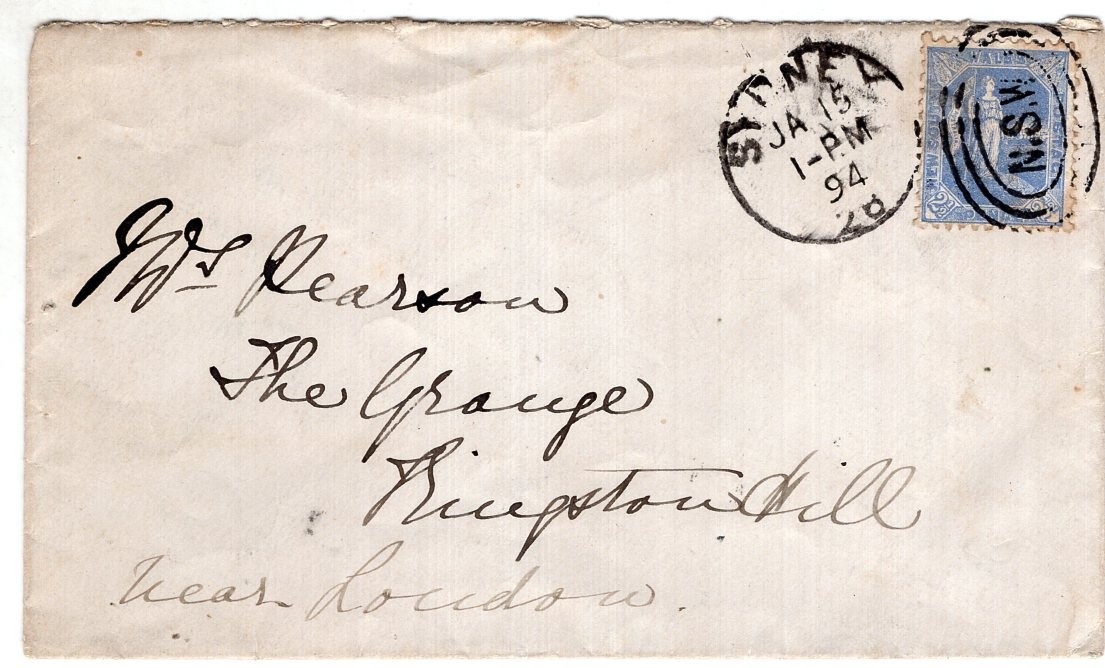 SYDNEY
JA 15
1-PM
94
28
N.S.W.
2½D
Mrs Pearson
The Grange
Kingston Hill
near London.